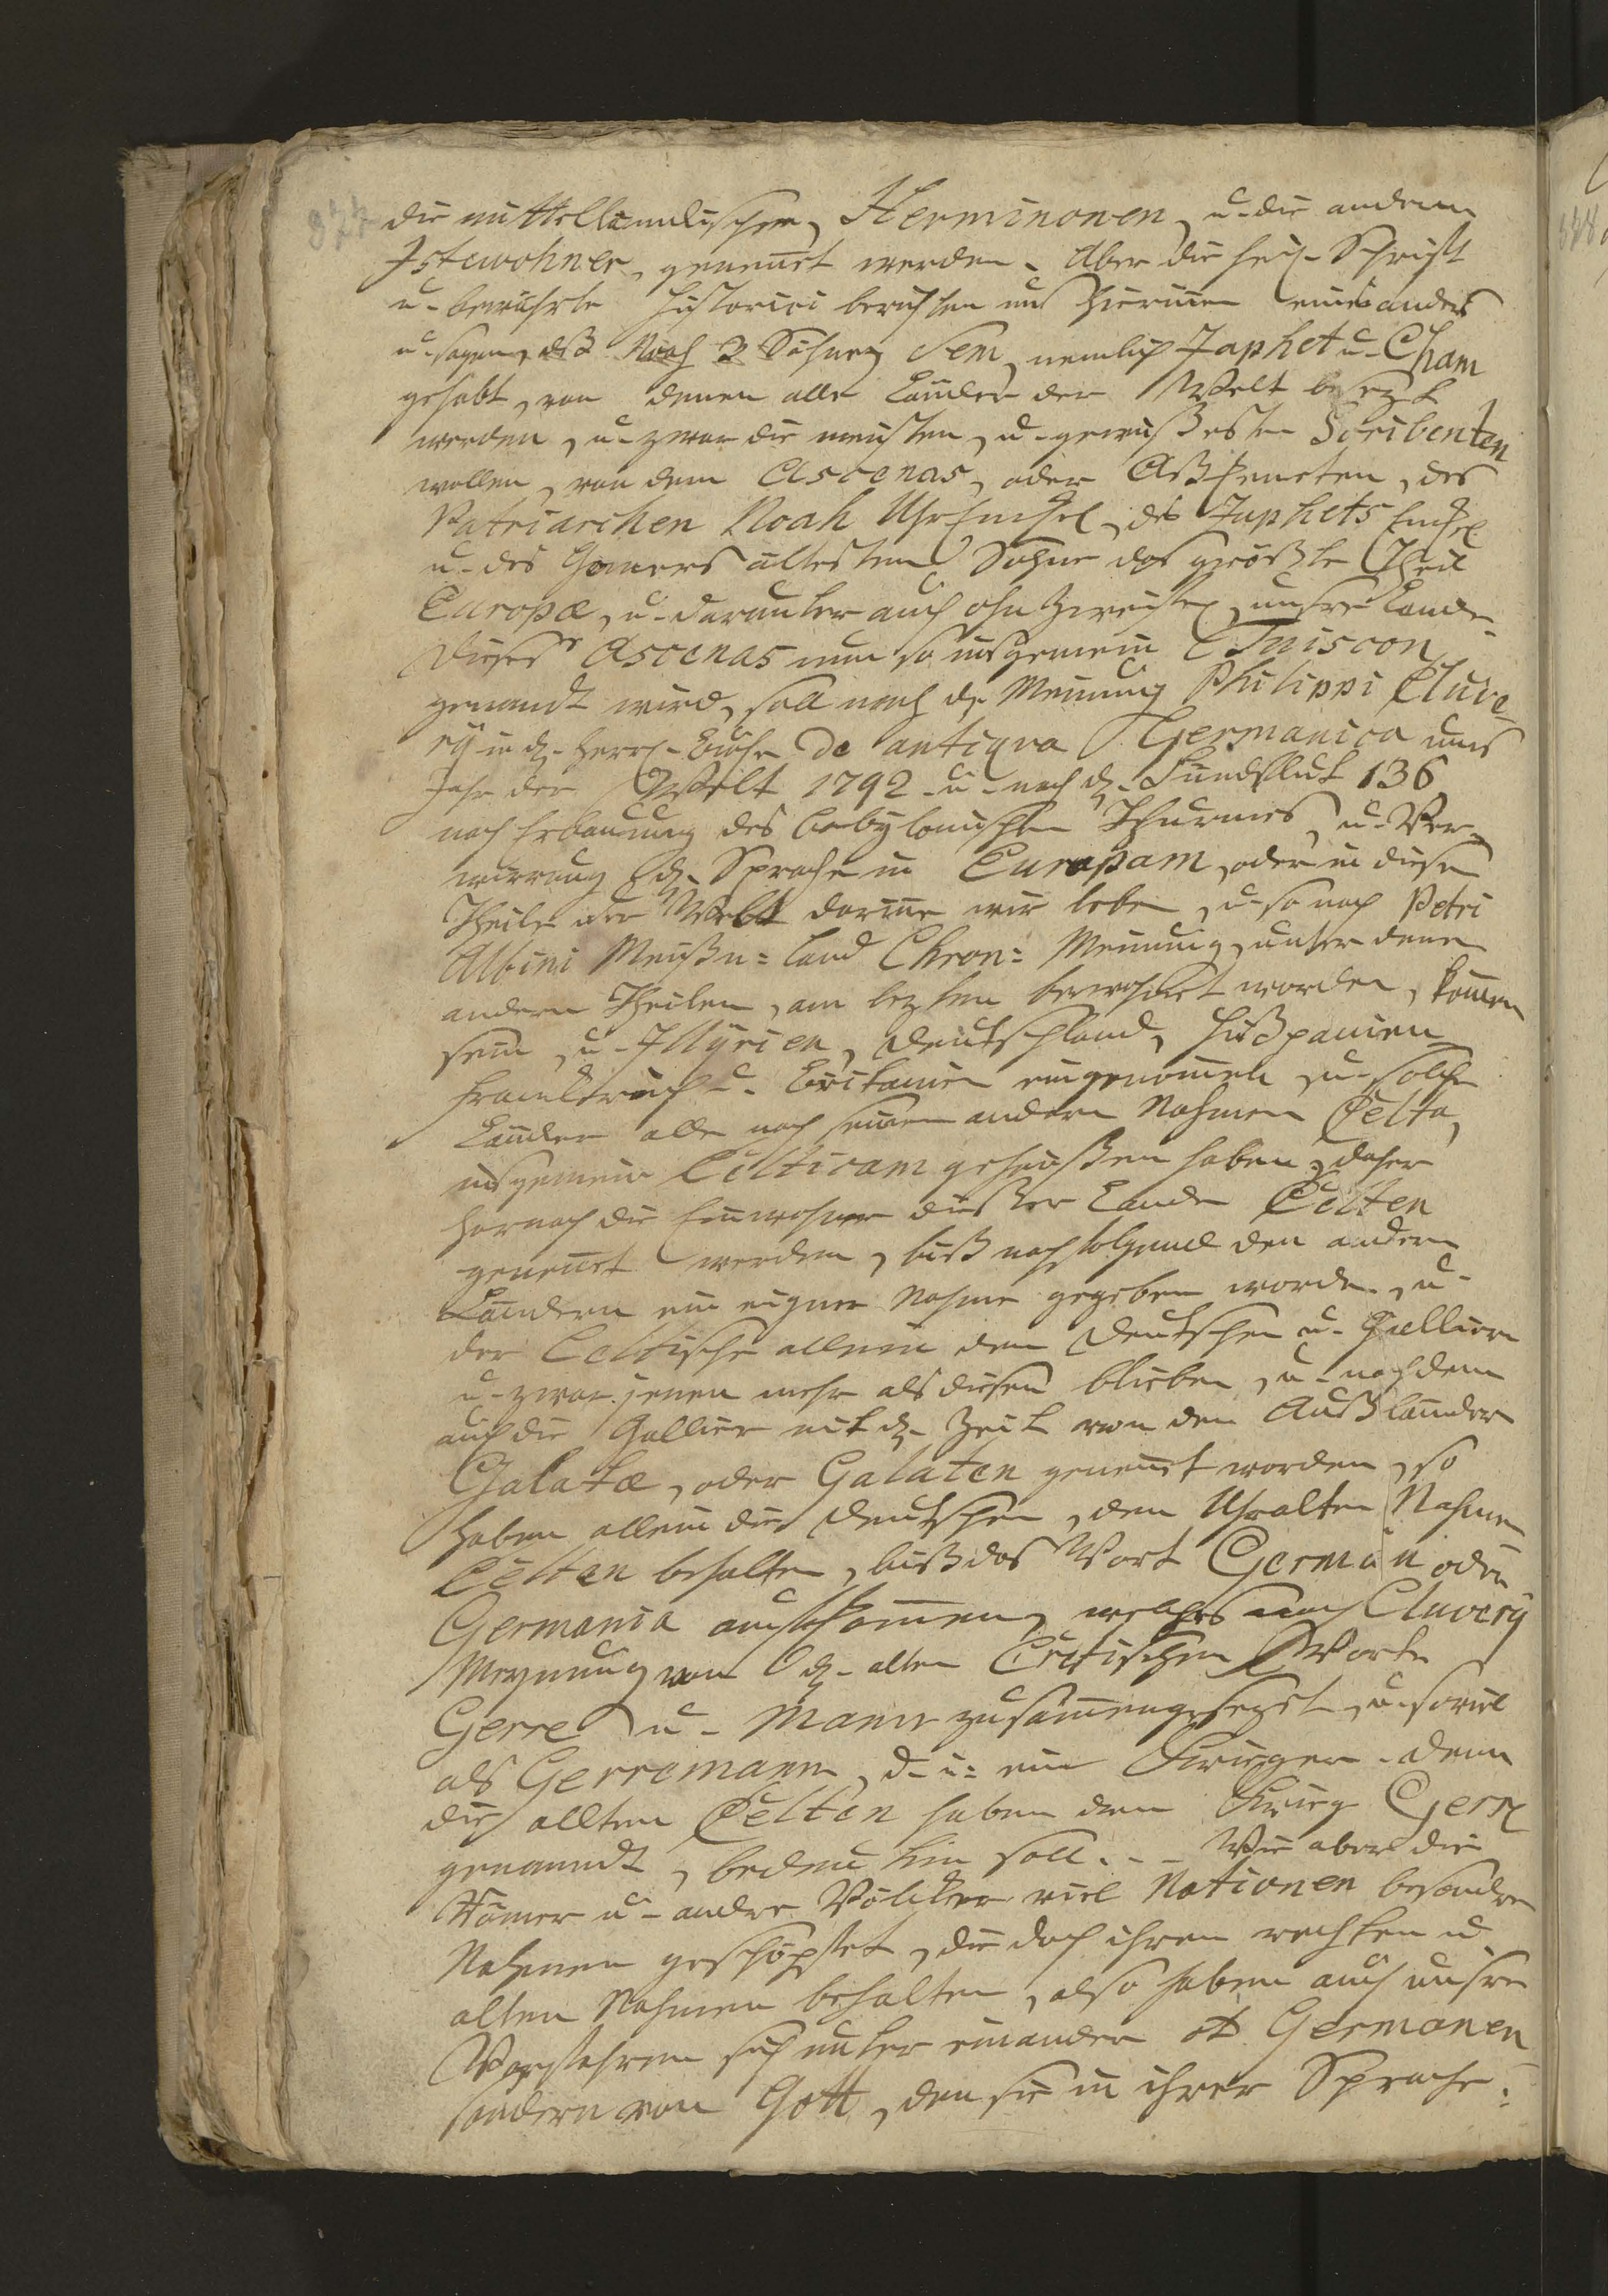 die mittelländischen Herminonen, u. die andern
Istewohner, genennet werden. Aber die heil. Schrifft
u. bewährte Historici berichten uns hierinnen ein anders
u. sagen, dß Noah 3 Söhne Sem, nemlich Japhet u. Cham
gehabt, von denen alle Länder der Welt besezt
worden, u. zwar die meisten, u. gewißesten Scribenten
wollen, von dem Ascenas, oder Aßkeneten, des
Patriarchen Noah Uhr Enckel, des Japhets Enckel
u. des Gomers ältesten Sohne das größte Theil
Europæ, u. darunter auch ohn Zweifel, unsre Lande.
Dieser Ascenas nun so insgemein Tuiscon
genandt wird, soll nach d. Meinung Philippi Cluve-
rÿ in d. Herrl. Buche De antiqva Germanica ums
Jahr der Welt 1792. u. nach d. Sündfluth 136
nach Erbauung des babylonischen Thurmes, u. Ver-
wirrung d. Sprache in Europam, oder in diesen
Theile der Welt darinne wir leben, u. so nach Petri
Albini Meißn= Land Chron: Meinung, unter denen
andern Theilen, am lezten bewohnet worden, kommen
sein, u. Illyrien, Deutschland, Hißpanien
Franckreich u. Britanien eingenommen, u. solche
Länder alle nach seinem andern Nahmen Celta,
insgemein Celticam geheißen haben, daher
hernach die Einwohner dieser Lande Celten
genennet worden, biß nachfolgend den andern
Ländern ein eigner Nahme gegeben worden, u.
der Celtische allein den Deutschen u. Galliern
u. zwar jenen mehr als diesen blieben, u. nachdem
auch die Gallier mit d. Zeit von den Außländern
Galatæ, oder Galaten genennet worden, so
haben allein die Deutschen, den Uhralten Nahmen
Celten behalten, biß das Wort German oder
Germania aufkommen, welches nach Cluverÿ
Meynung von d. alten Celtischen Worte
Gerre u. Mann zusammengesezet, u. soviel
als Gerremann, d. i. ein Krieger. denn
die allten Celten haben den Krieg Gerre
genanndt, bedeuten soll. - - Wie aber die
Römer u. andre Völcker viel Nationen besondre
Nahmen geschöpfet, die doch ihren rechten u.
alten Nahmen behalten, also haben auch unsre
Vorfahren sich unter einander Germanen
sondern von Gott, den sie in ihrer Sprache: